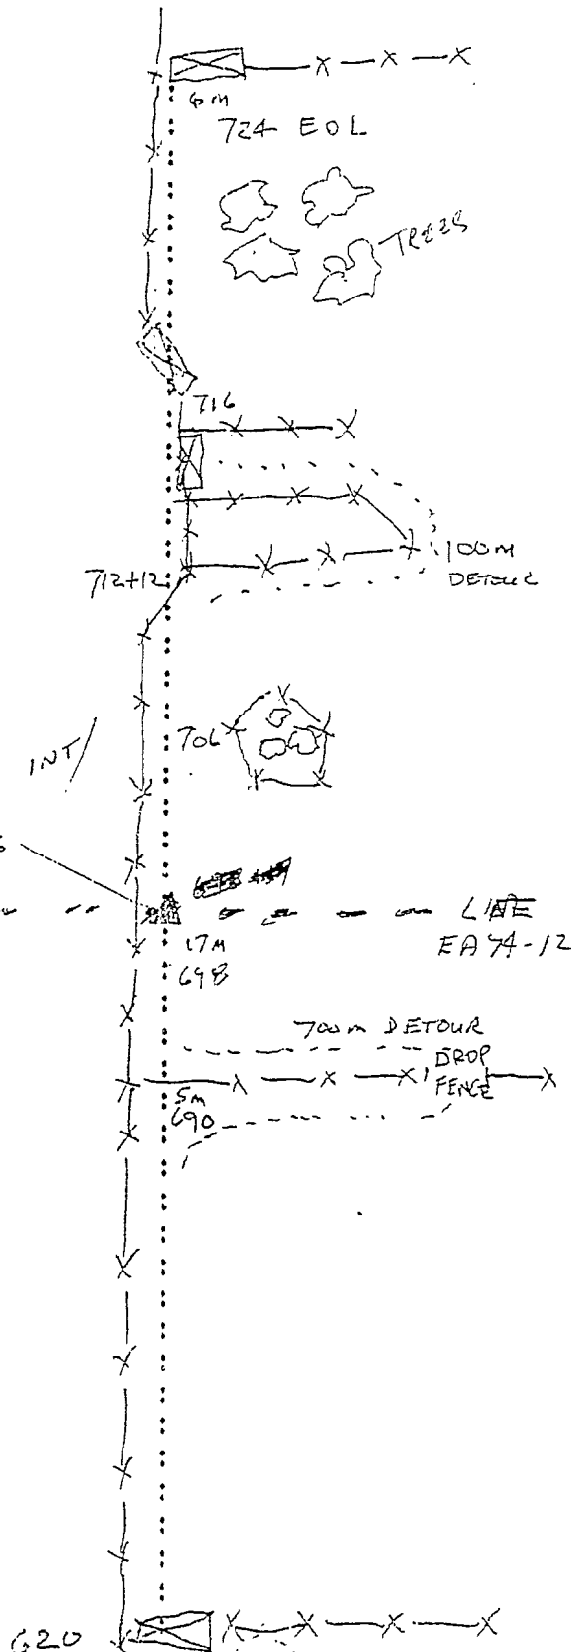 6m
724 EOL
TREES
716
100m
DETOUR
712+12
706
INT
LINE
EA 74-12
17M
698
700m DETOUR
DROP
FENCE
5m
690
620